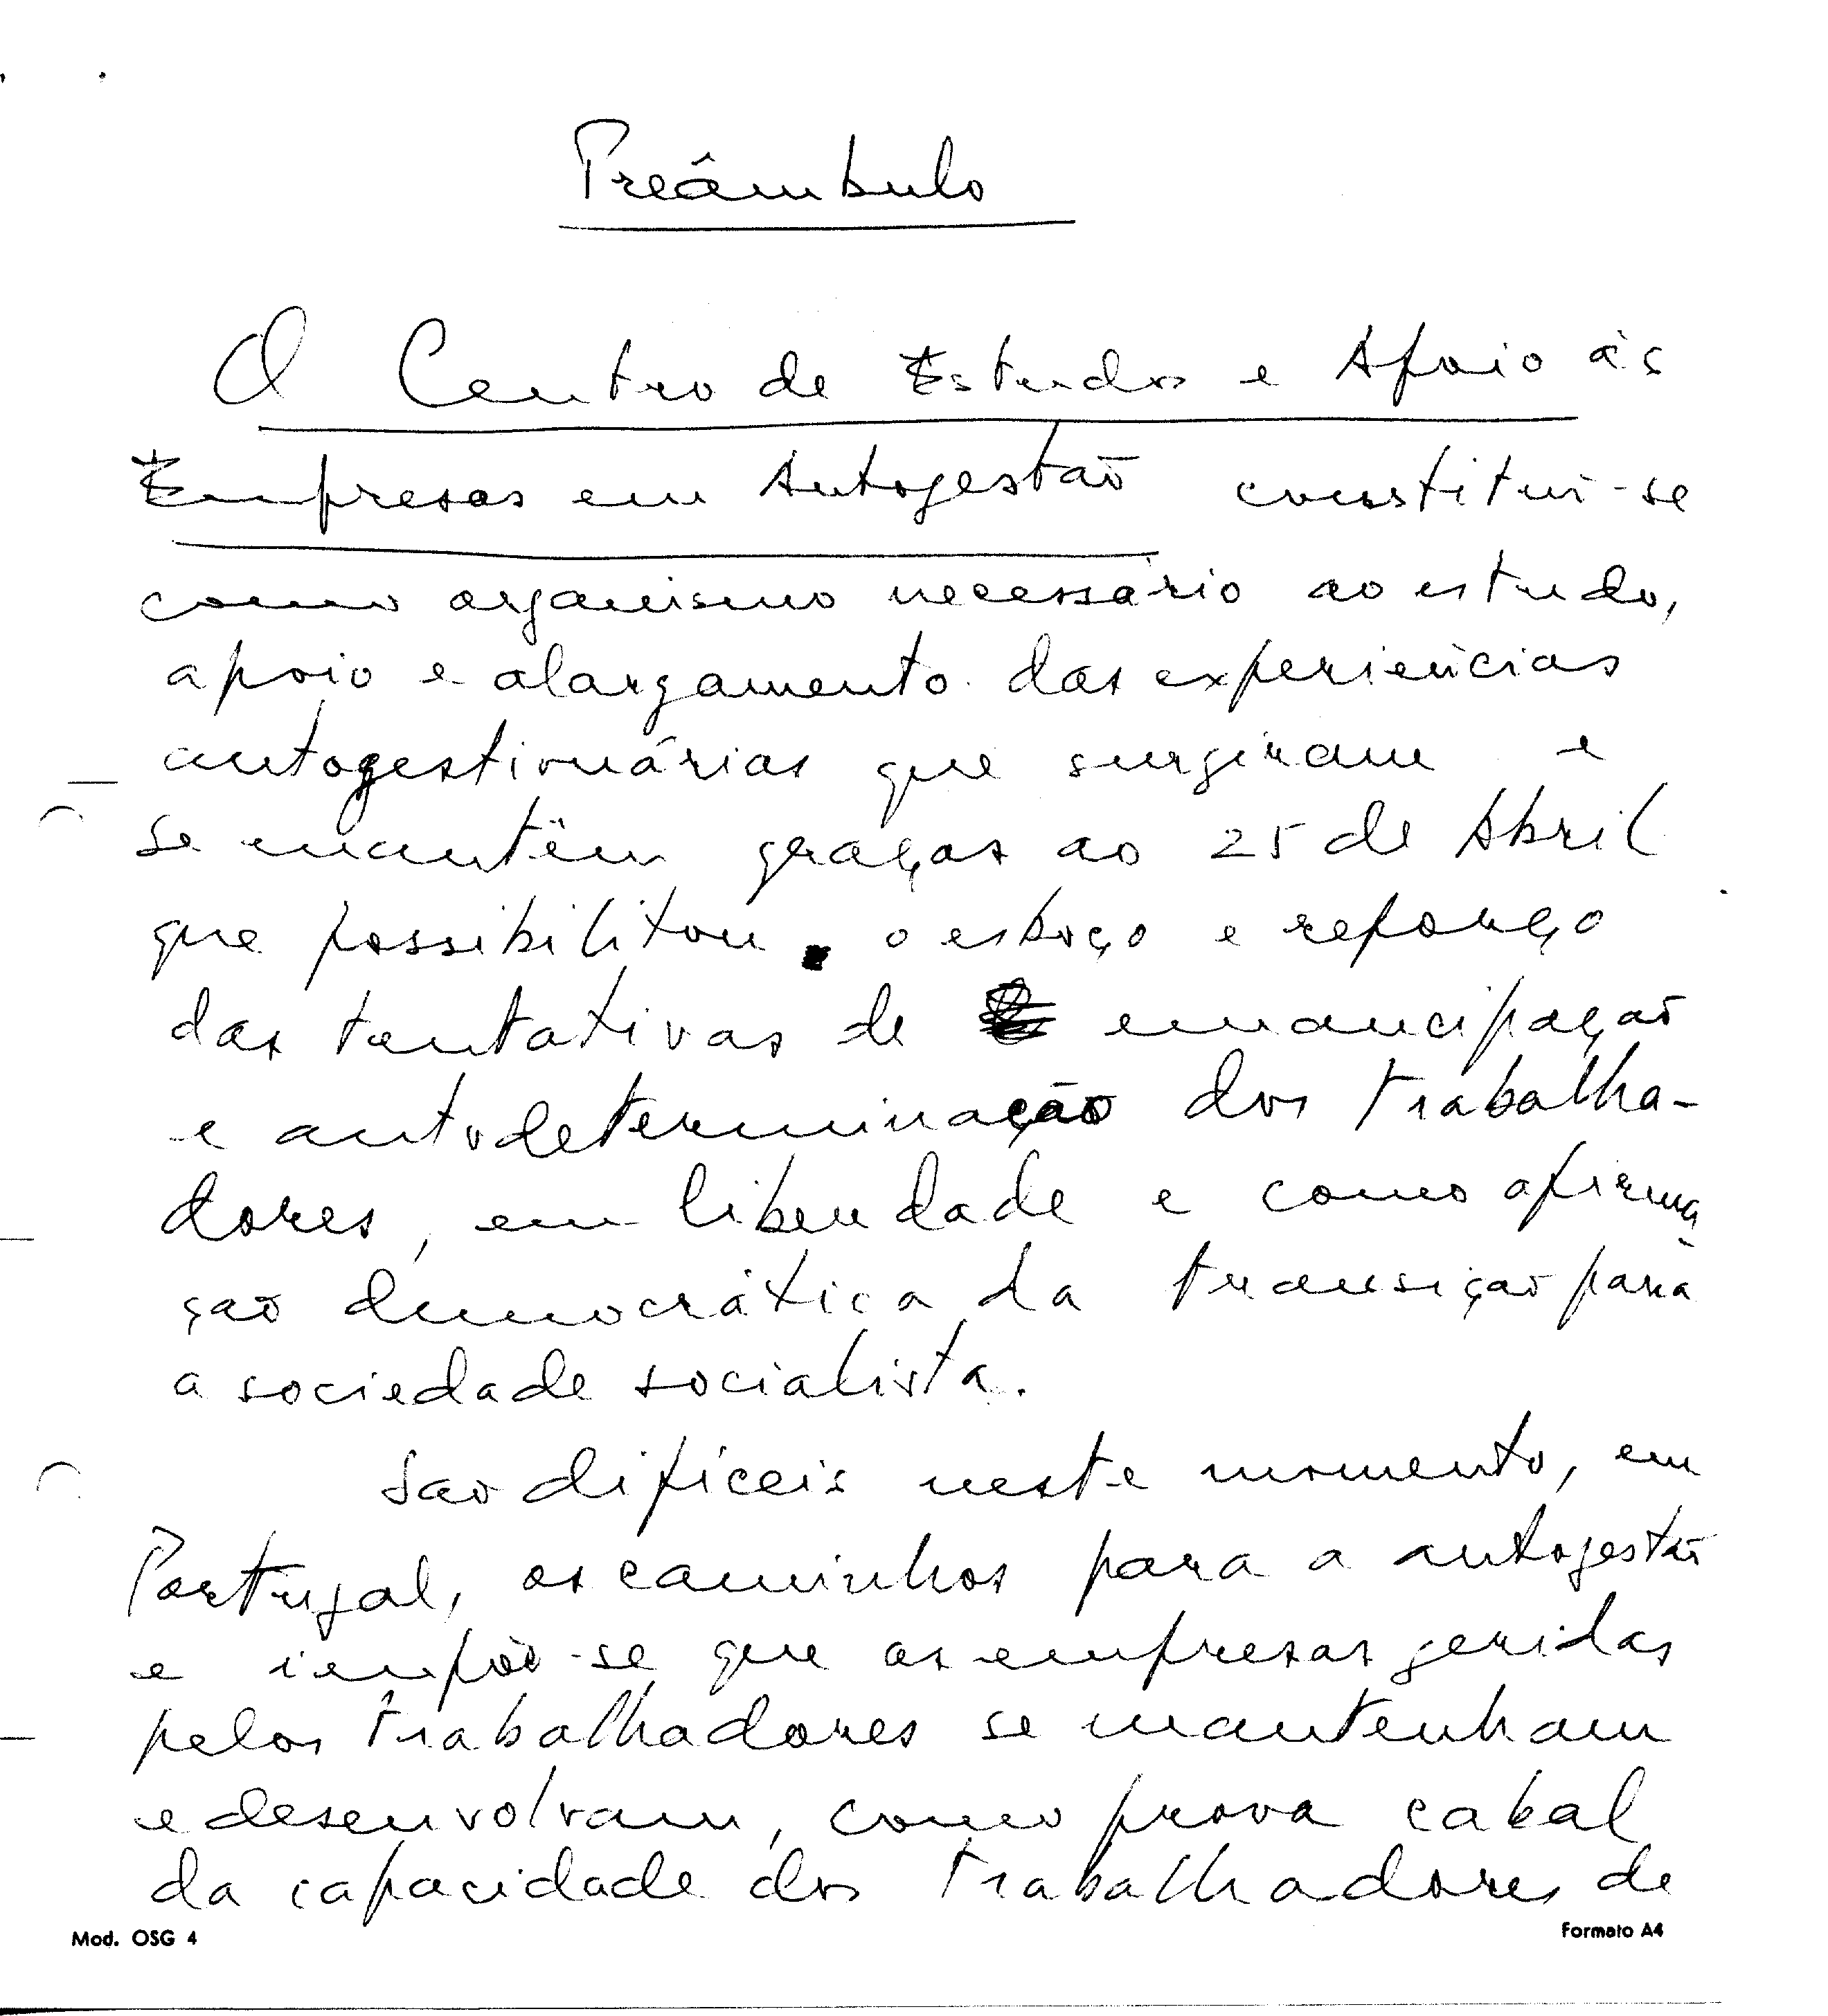 Preâmbulo
O Centro de Estudos e Apoio às
Empresas em Autogestão constitui-se
como organismo necessário ao estudo,
apoio e alargamento das experiências
autogestionárias que surgiram e
se mantêm graças ao 25 de Abril
que possibilitou o esboço e reforço
das tentativas de emancipação
e autodeterminação dos trabalha-
dores, em liberdade e como afirma
ção democrática da transição para
a sociedade socialista.
São difíceis neste momento, em
Portugal, os caminhos para a autogestão
e impõe-se que as empresas geridas
pelos trabalhadores se mantenham
e desenvolvam, como prova cabal
da capacidade dos trabalhadores de
Mod. OSG 4
Formato A4